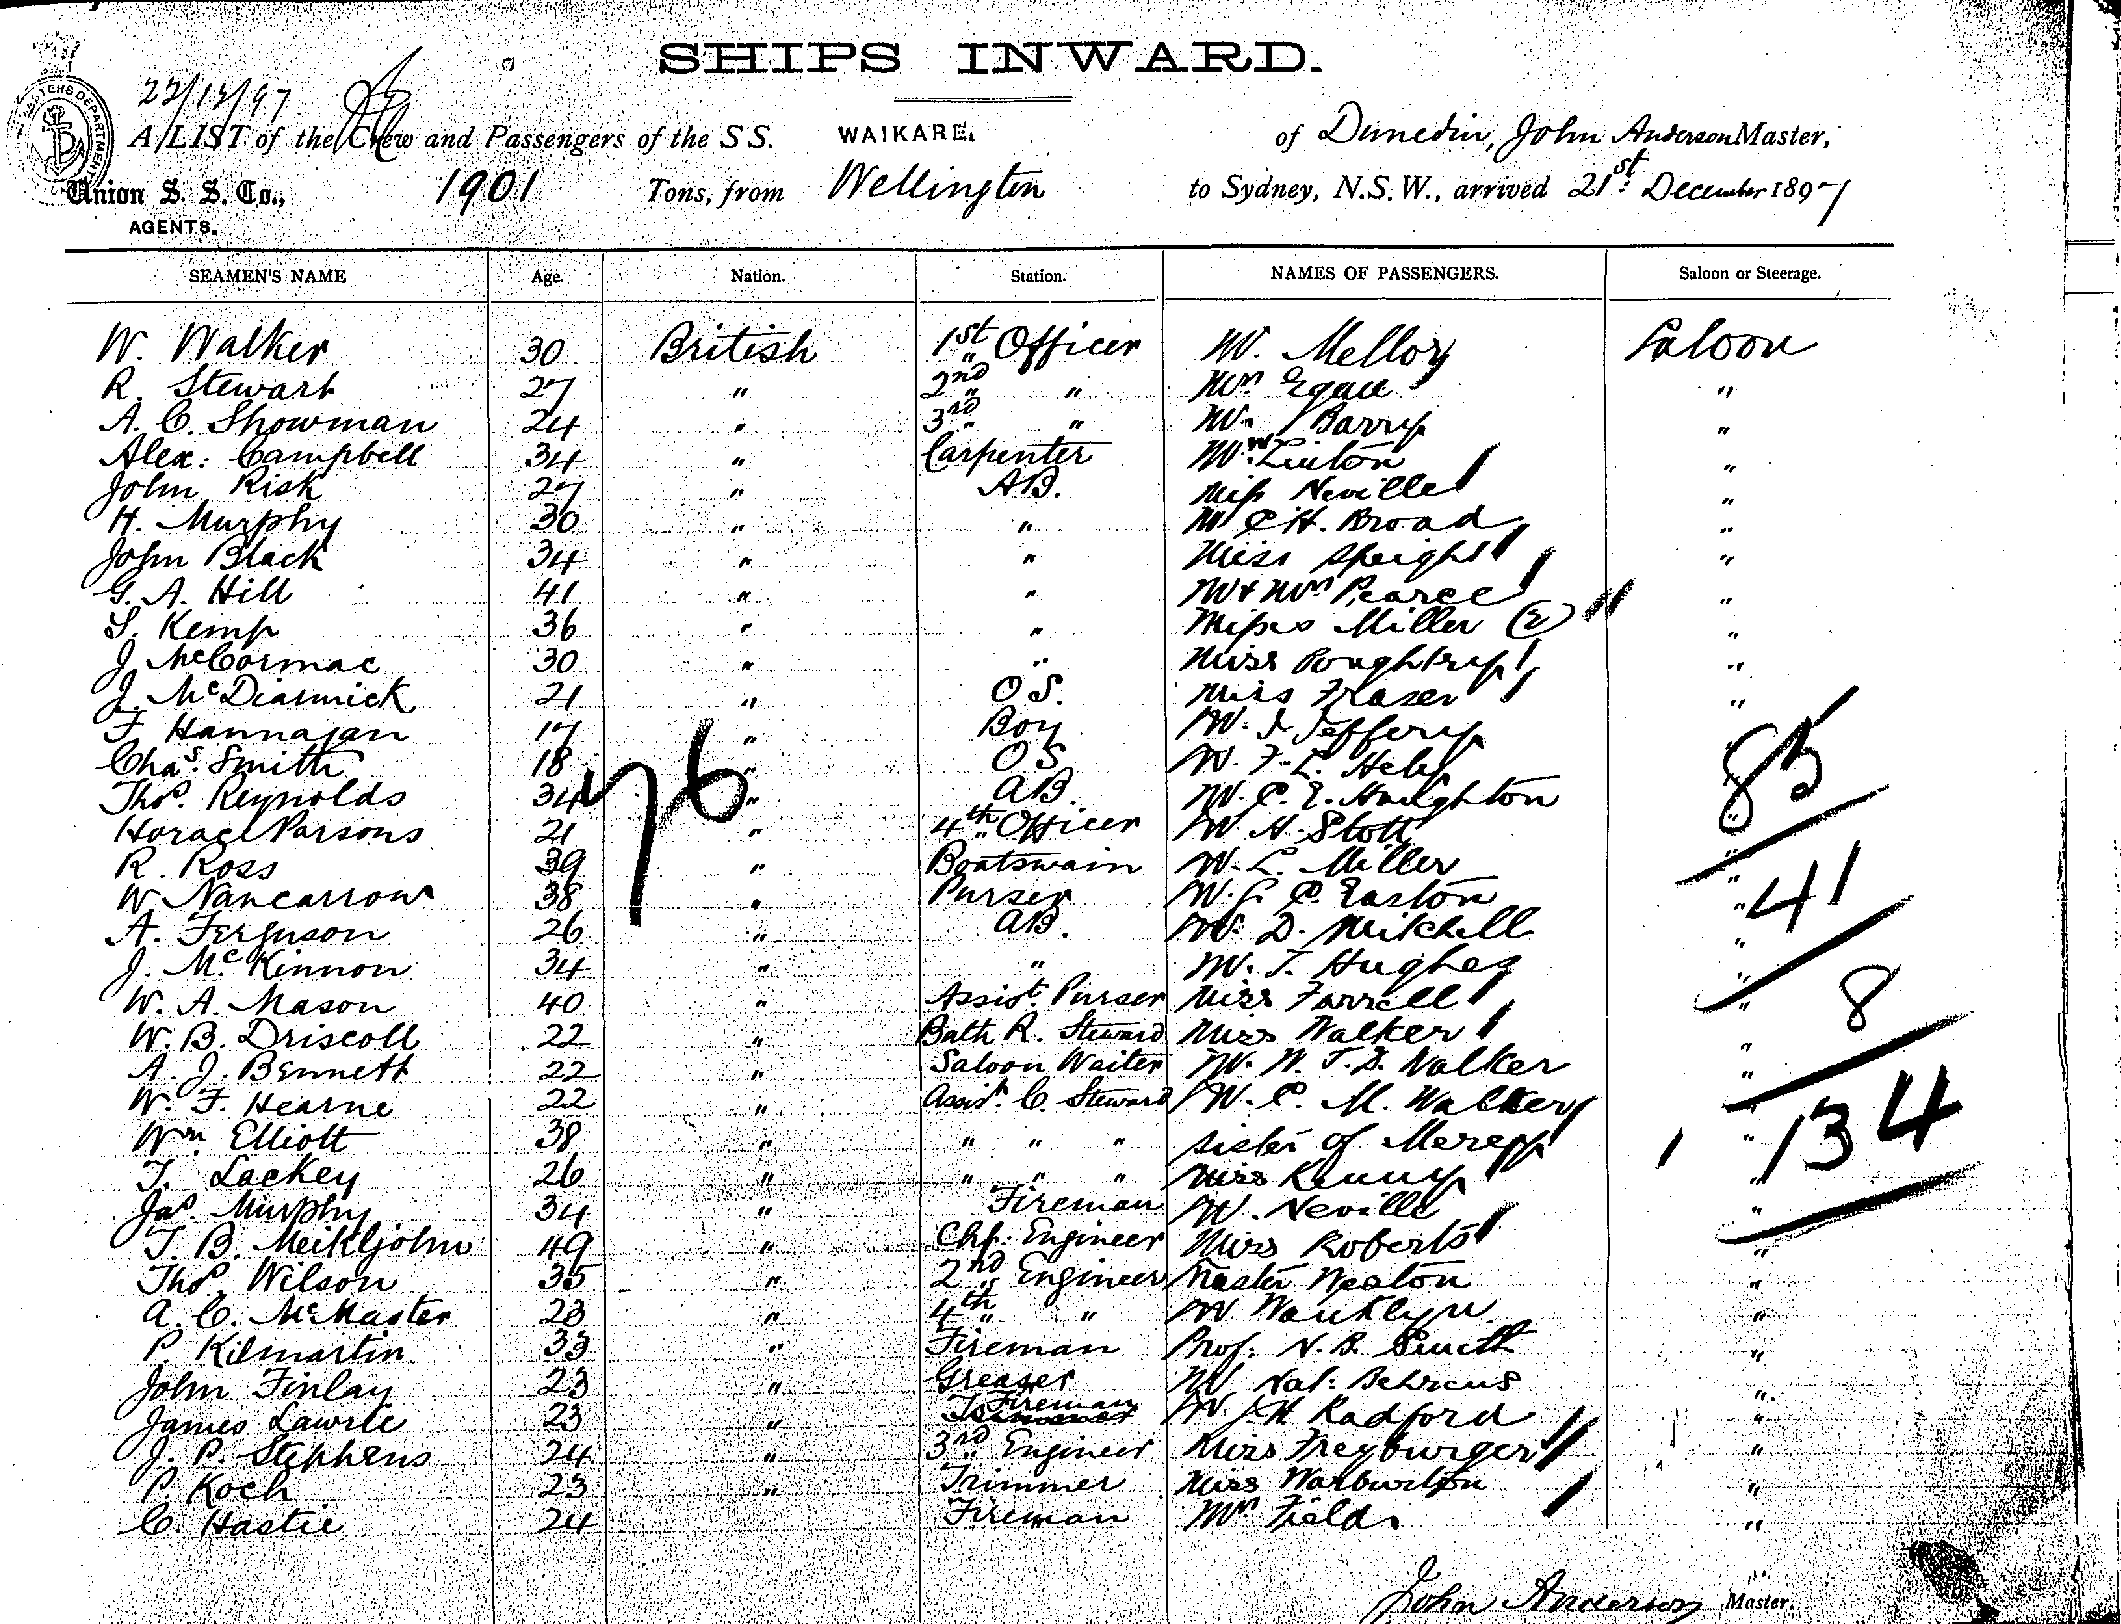 SHIPS INWARD.
22/12/97
A LIST of the Crew and Passengers of the S S. WAIKARE. of Dunedin, John Anderson Master,
Union S. S. Co., 1901 Tons, from Wellington to Sydney, N.S.W., arrived 21st December 1897
AGENTS.
SEAMEN'S NAME Age. Nation. Station. NAMES OF PASSENGERS. Saloon or Steerage.
W. Walker 30 British 1st Officer Mr. Melloy Saloon
R. Stewart 27 " 2nd " Mrs Egan "
A. C. Showman 24 " 3rd " Mr. Barry "
Alex: Campbell 34 " Carpenter Linton "
John Risk 27 " AB. Miss Neville "
H. Murphy 30 " " Mr C H. Broad "
John Black 34 " " Miss Speight "
G. A. Hill 41 " " Mr & Mrs Pearce "
S. Kemp 36 " " Misses Miller (2) "
J. McCormac 30 " " Miss "
J. McDiarmick 21 " OS. Miss Fraser "
F. Hannagan 17 " Boy Mr. Jeffery
Chas. Smith 18 " OS Mr. F. L.
Thos. Reynolds 34 " AB. Mr. C. E. Haughton
76
85
Horace Parsons 21 " 4th Officer Mr H. Stott "
R. Ross 39 " Boatswain Mr. L. Miller "
W Nancarrow 38 " Purser Mr. Easton "
41
A. Ferguson 26 " AB. Mr. D. Mitchell "
J. McKinnon 34 " " Mr. T. Hughes "
W. A. Mason 40 " Assist. Purser Miss Farrell "
8
W. B. Driscoll 22 " Bath R. Steward Miss Walker "
A. J. Bennett 22 " Saloon Waiter Mr. W. Walker "
W. F. Hearne 22 " Assist. C. Steward Mr. C. M. Walker
134
Wm Elliott 38 " " " " Sister of "
T. Lackey 26 " " " " Miss Kenny "
Jas Murphy 34 " Fireman Mr. Neville "
T. B. Meikljohn 49 " Chf. Engineer Miss Roberts "
Thos. Wilson 35 " 2nd Engineer Master Neaton "
A. C. McMaster 23 " 4th " Mr Wanklyn "
P Kilmartin 33 " Fireman Prof. "
John Finlay 23 " Greaser Mr Nat. Behrens "
James Lawrie 23 " Fireman Mr J. H Radford "
J. P. Stephens 24 " 3rd Engineer Miss Freyburger "
P Koch 23 " Trimmer Miss Warburton "
C. Hastie 24 " Fireman Field "
John Anderson Master.